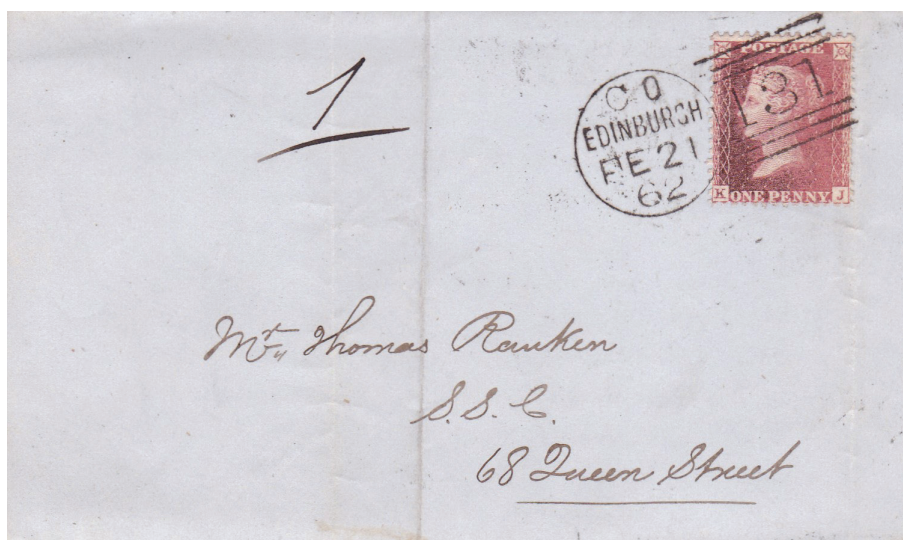 1
C O
EDINBURGH
FE 21
62
131
POSTAGE
K ONE PENNY J
Mr. Thomas Ranken
S. S. C.
68 Queen Street